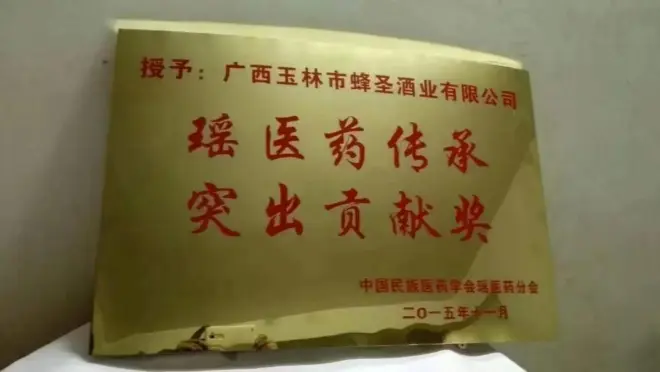 授予：广西玉林市蜂圣酒业有限公司
瑶医药传承
突出贡献奖
中国民族医药学会瑶医药分会
二〇一五年十一月